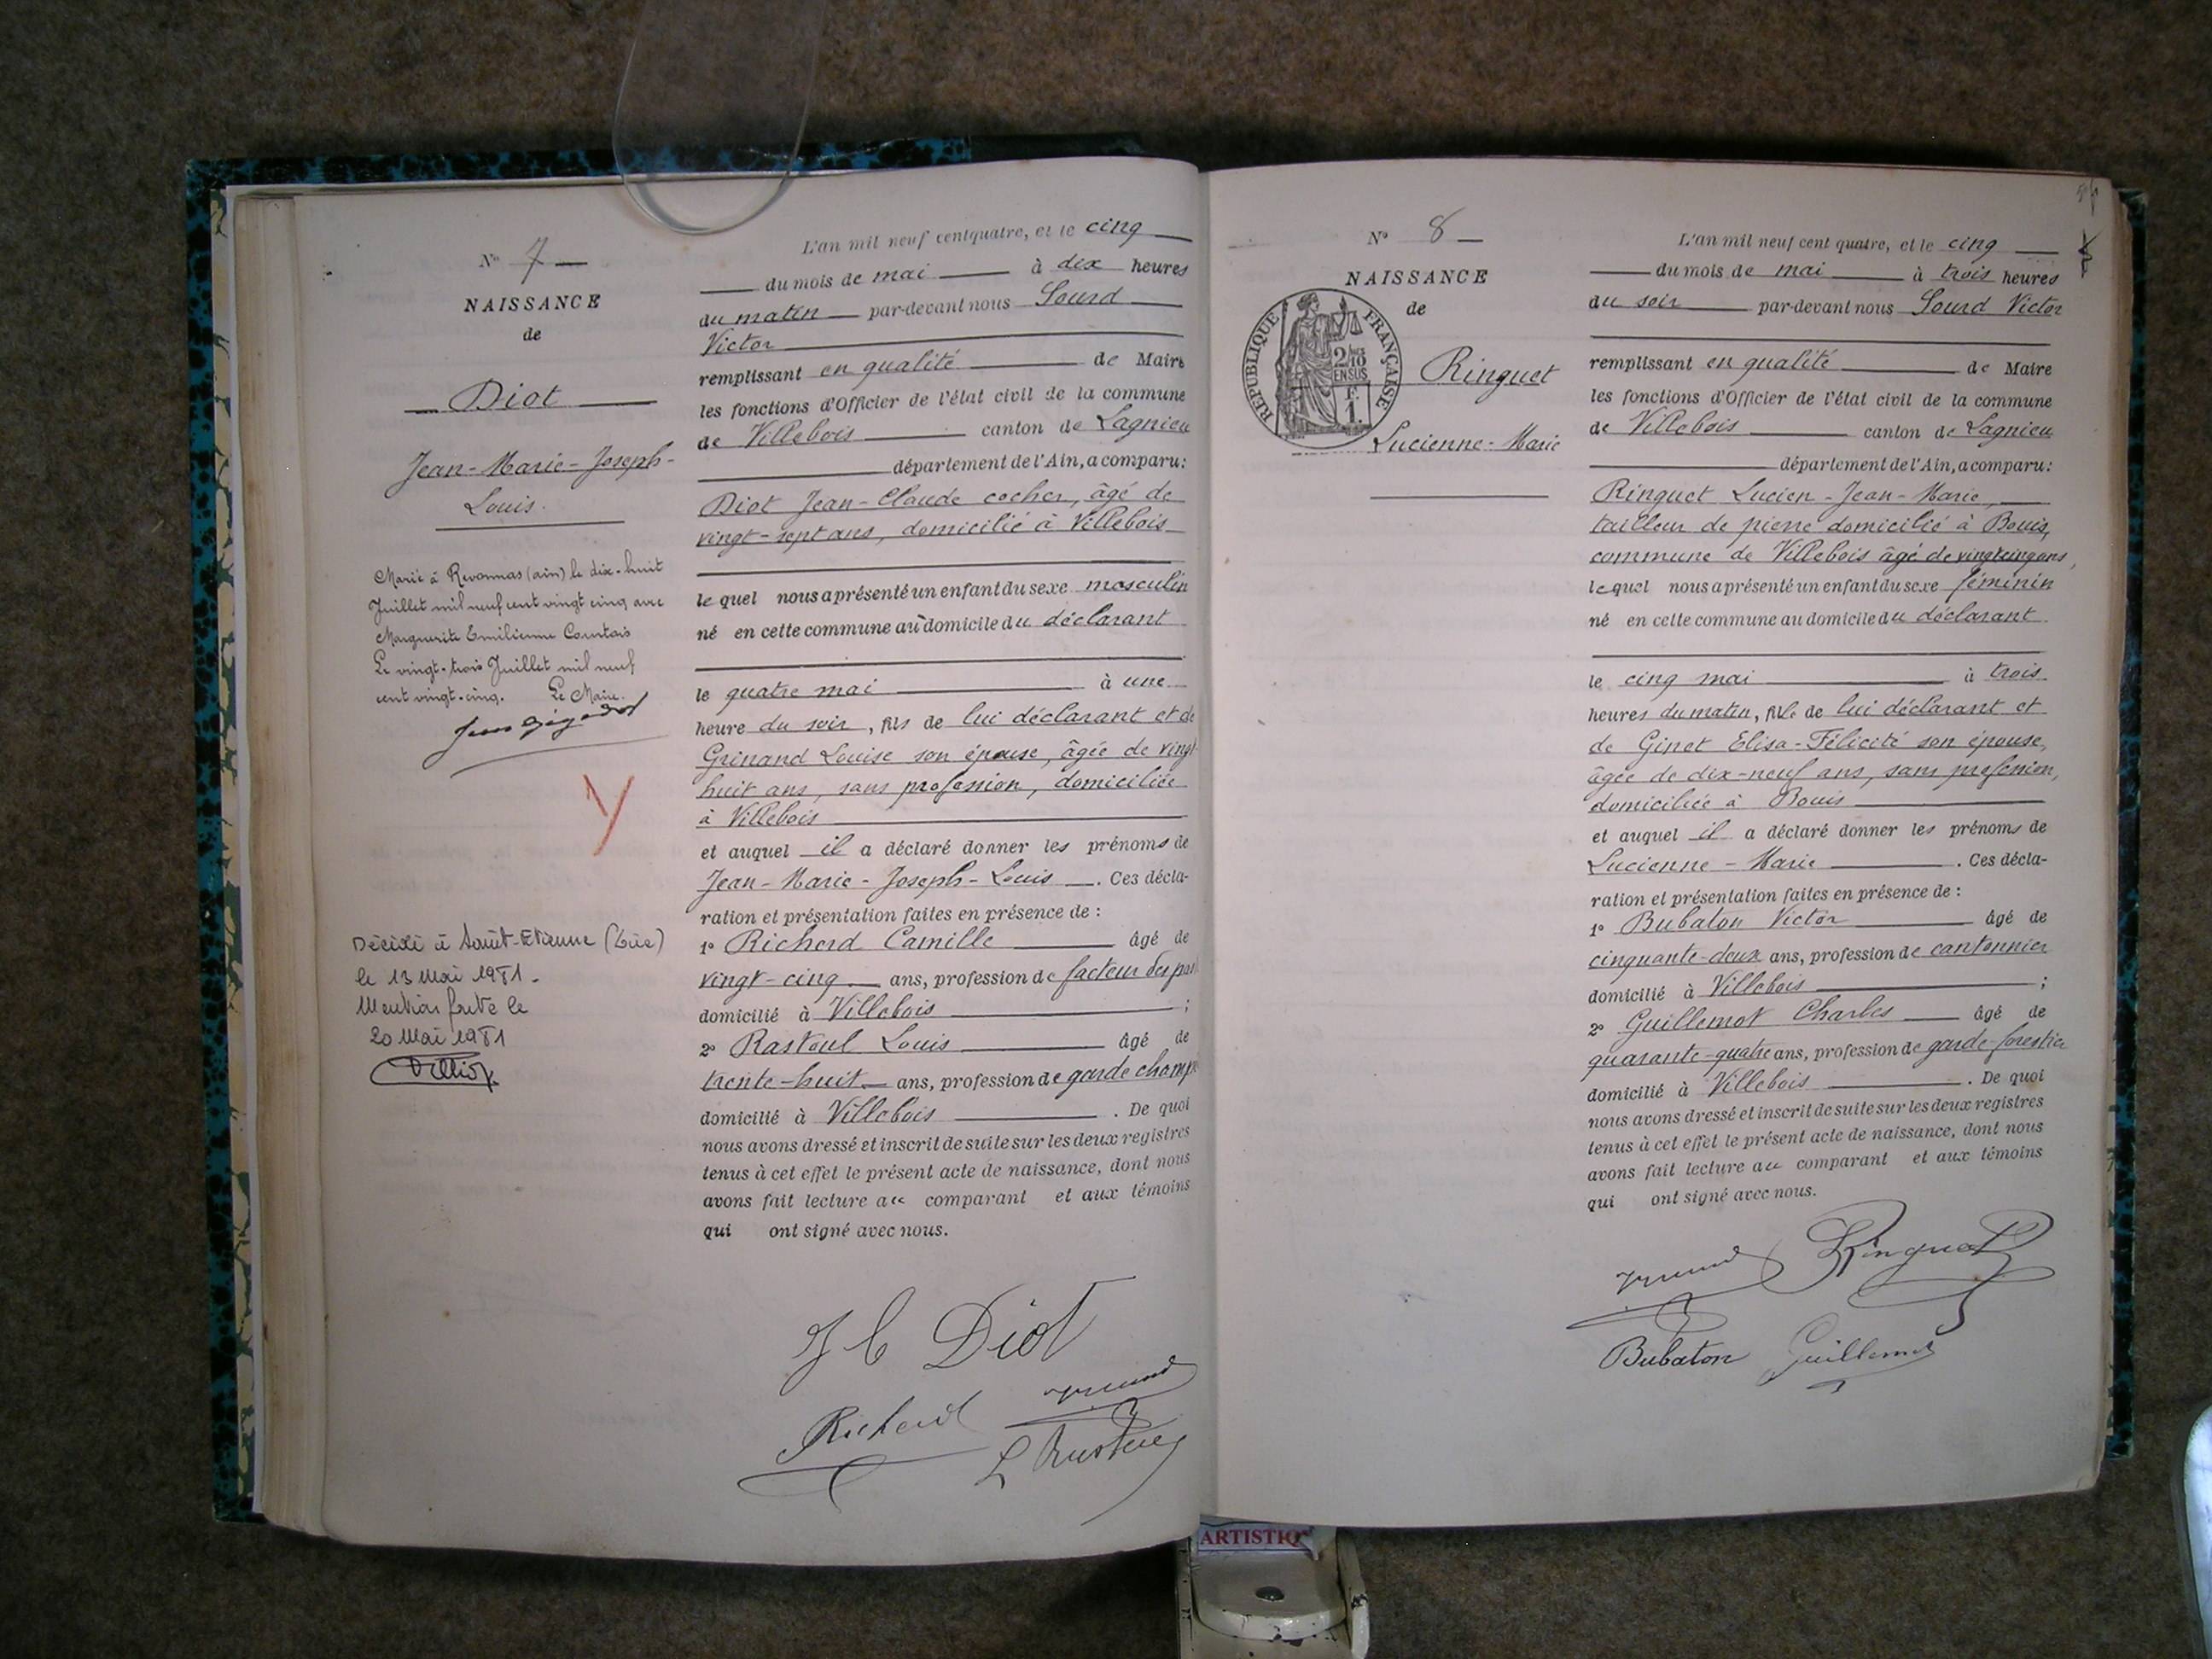 N° 7
NAISSANCE
de
Diot
Jean-Marie-Joseph-
Louis.
Marié à Revonnas (ain) le dix-huit
Juillet mil neuf cent vingt cinq avec
Marguerite Emilienne Courtois
Le vingt-trois Juillet mil neuf
cent vingt-cinq. Le Maire.
Décédé à Saint-Etienne (Loire)
le 13 Mai 1981.
Mention faite le
20 Mai 1981
L'an mil neuf cent quatre, et le cinq
du mois de mai à dix heures
du matin par-devant nous Sourd
Victor
remplissant en qualité de Maire
les fonctions d'Officier de l'état civil de la commune
de Villebois canton de Lagnieu
département de l'Ain, a comparu:
Diot Jean-Claude cocher, âgé de
vingt-sept ans, domicilié à Villebois
lequel nous a présenté un enfant du sexe masculin
né en cette commune au domicile du déclarant
le quatre mai à une
heure du soir, fils de lui déclarant et de
Grinand Louise son épouse, âgée de vingt-
huit ans, sans profession, domiciliée
à Villebois
et auquel il a déclaré donner les prénoms de
Jean-Marie-Joseph-Louis. Ces décla-
ration et présentation faites en présence de :
1° Richard Camille âgé de
vingt-cinq ans, profession de facteur des
domicilié à Villebois ;
2° Rastoul Louis âgé de
trente-huit ans, profession de garde champ
domicilié à Villebois. De quoi
nous avons dressé et inscrit de suite sur les deux registres
tenus à cet effet le présent acte de naissance, dont nous
avons fait lecture au comparant et aux témoins
qui ont signé avec nous.
J C Diot
Richard
L Rastoul
N° 8
NAISSANCE
de
RÉPUBLIQUE FRANÇAISE
2/10
EN SUS
F.
1.
Ringuet
Lucienne-Marie
L'an mil neuf cent quatre, et le cinq
du mois de mai à trois heures
du soir par-devant nous Sourd Victor
remplissant en qualité de Maire
les fonctions d'Officier de l'état civil de la commune
de Villebois canton de Lagnieu
département de l'Ain, a comparu:
Ringuet Lucien-Jean-Marie,
tailleur de pierre domicilié à Bouis,
commune de Villebois âgé de vingt cinq ans,
lequel nous a présenté un enfant du sexe féminin
né en cette commune au domicile du déclarant
le cinq mai à trois
heures du matin, fille de lui déclarant et
de Ginet Elisa-Félicité son épouse,
âgée de dix-neuf ans, sans profession,
domiciliée à Bouis
et auquel il a déclaré donner les prénoms de
Lucienne-Marie. Ces décla-
ration et présentation faites en présence de :
1° Bubaton Victor âgé de
cinquante-deux ans, profession de cantonnier
domicilié à Villebois ;
2° Guillemot Charles âgé de
quarante-quatre ans, profession de garde-forestier
domicilié à Villebois. De quoi
nous avons dressé et inscrit de suite sur les deux registres
tenus à cet effet le présent acte de naissance, dont nous
avons fait lecture au comparant et aux témoins
qui ont signé avec nous.
Ringuet
Bubaton Guillemot
ARTISTIQ